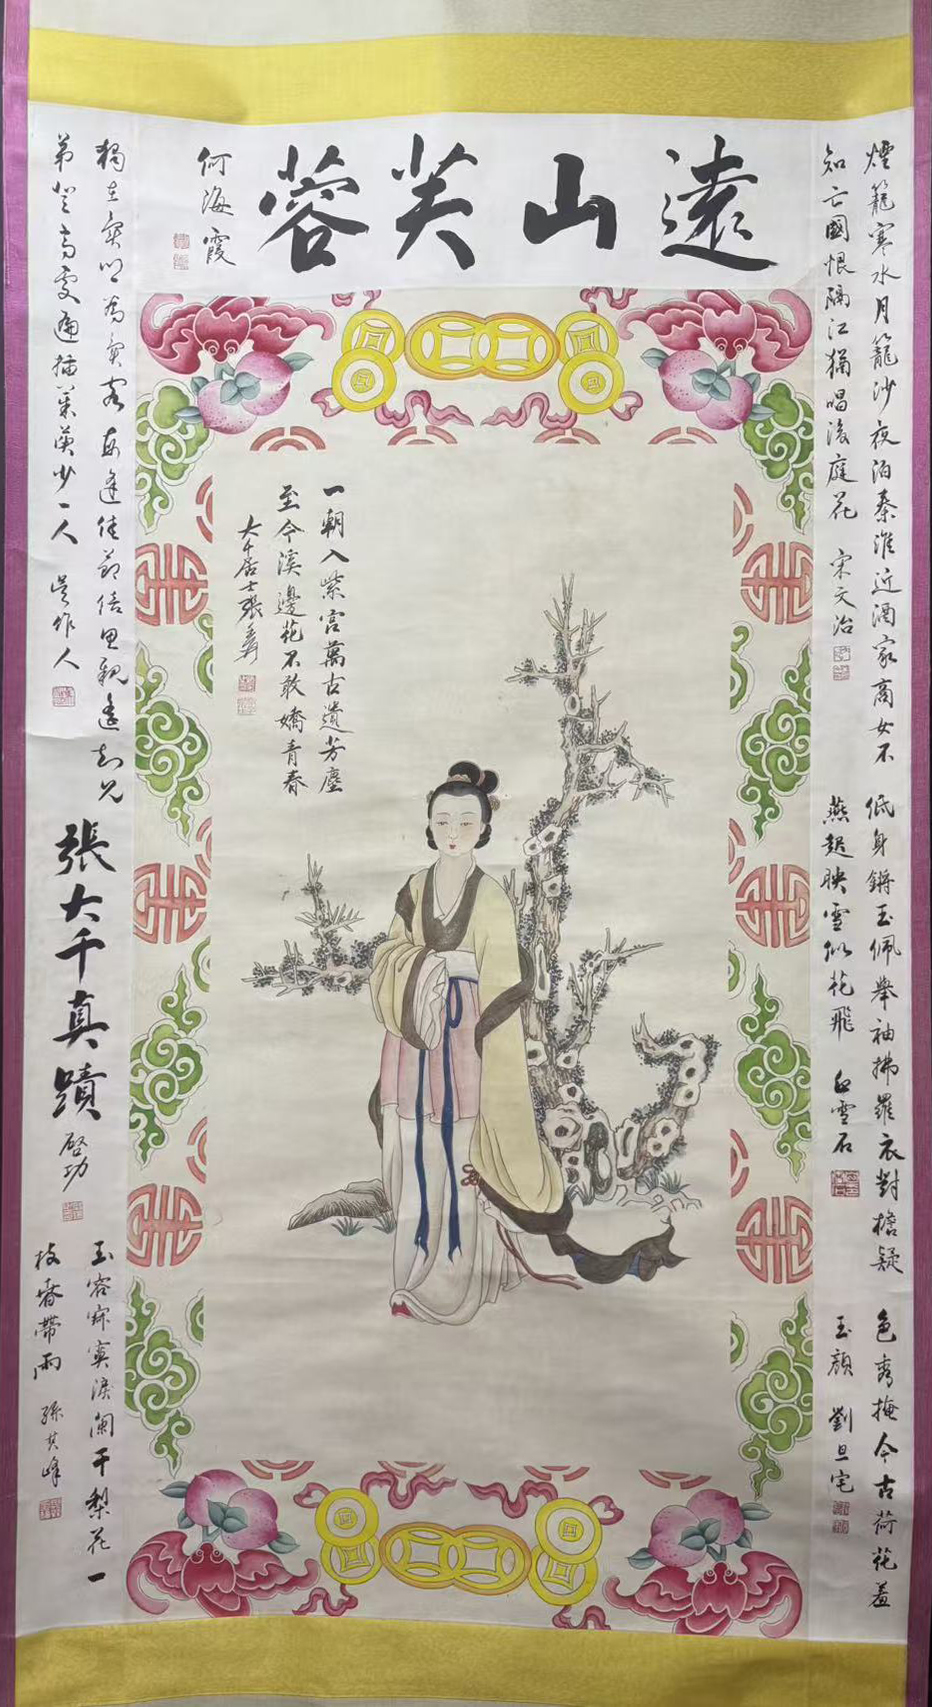 遠山芙蓉
何海霞
煙籠寒水月籠沙夜泊秦淮近酒家商女不
知亡國恨隔江猶唱後庭花
宋文治
低身鏘玉佩舉袖拂羅衣對檐疑
燕起映雪似花飛
白雪石
色秀掩今古荷花羞
玉顏
劉旦宅
一朝入紫宮萬古遺芳塵
至今溪邊花不敢嬌青春
大千居士張爰
獨在異鄉為異客每逢佳節倍思親遙知兄
弟登高處遍插茱萸少一人
吳作人
張大千真蹟
啓功
玉容寂寞淚闌干梨花一
枝春帶雨
孫其峰